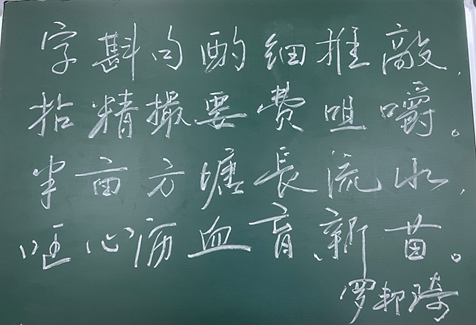 字斟句酌细推敲，
拈精撮要费咀嚼。
半亩方塘長流水，
呕心沥血育新苗。
罗邦琦